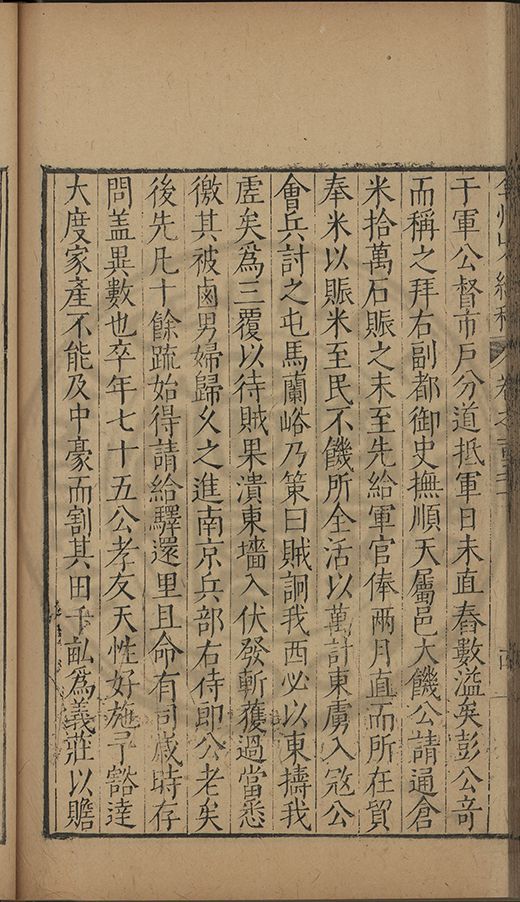 弇州山人續稿 卷之百三十
于軍公督市戶分道抵軍日未直舂數溢矣彭公竒
而稱之拜右副都御史撫順天屬邑大饑公請通倉
米拾萬石賑之未至先給軍官俸兩月直而所在貿
奉米以賑米至民不饑所全活以萬計東虜入寇公
會兵計之屯馬蘭峪乃策曰賊詗我西必以東擣我
虗矣為三覆以待賊果潰東墻入伏發斬獲過當悉
徼其被鹵男婦歸乆之進南京兵部右侍郎公老矣
後先凡十餘疏始得請給驛還里且命有司歲時存
問盖異數也卒年七十五公孝友天性好施予豁達
大度家產不能及中豪而割其田千畝為義莊以贍